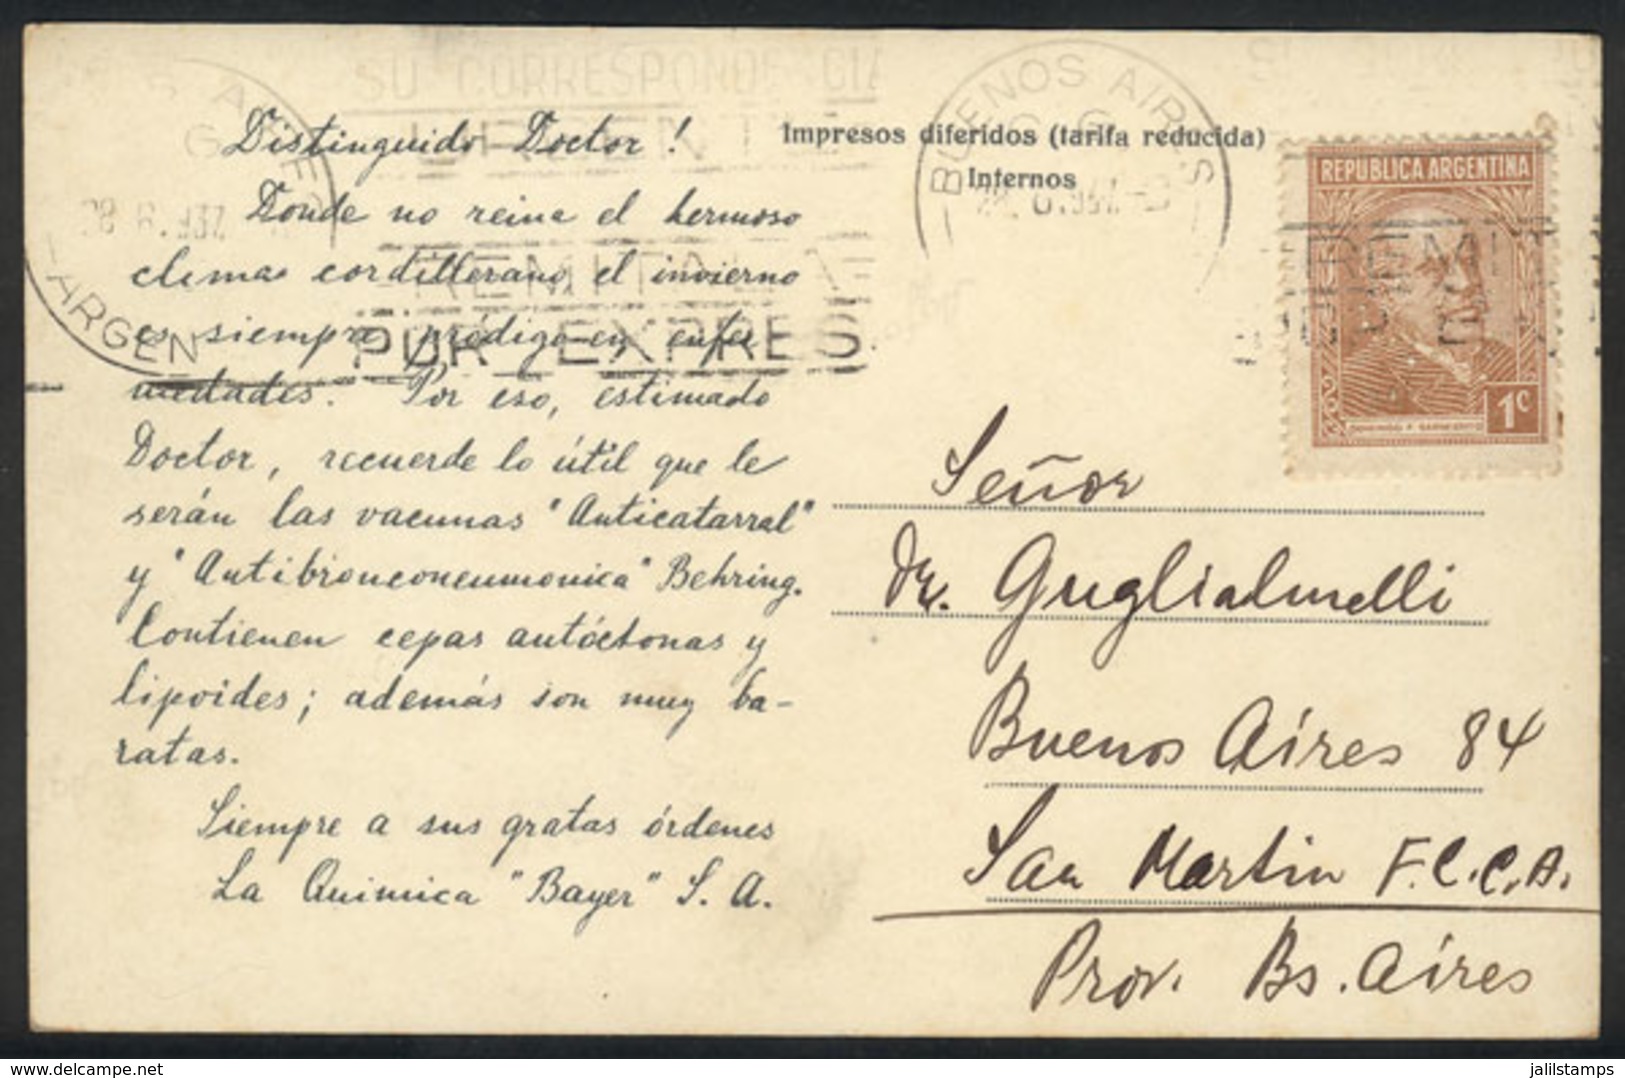 SU CORRESPONDENCIA
URGENTE
REMITALA
POR EXPRES
BUENOS AIRES
ARGEN
Distinguido Doctor!
Donde no reina el hermoso
clima cordillerano, el invierno
es siempre pródigo en enfer
medades. Por eso, estimado
Doctor, recuerde lo útil que le
serán las vacunas "Anticatarral"
y "Antibronconeumonica" Behring.
Contienen cepas autóctonas y
lipoides; además son muy ba-
ratas.
Siempre a sus gratas órdenes
La Quimica "Bayer" S. A.
Impresos diferidos (tarifa reducida)
Internos
REPUBLICA ARGENTINA
DOMINGO F. SARMIENTO
1c
REMIT
Señor
Dr. Guglialmelli
Buenos Aires 84
San Martin F.C.C.A.
Prov. Bs. Aires
jalilstamps